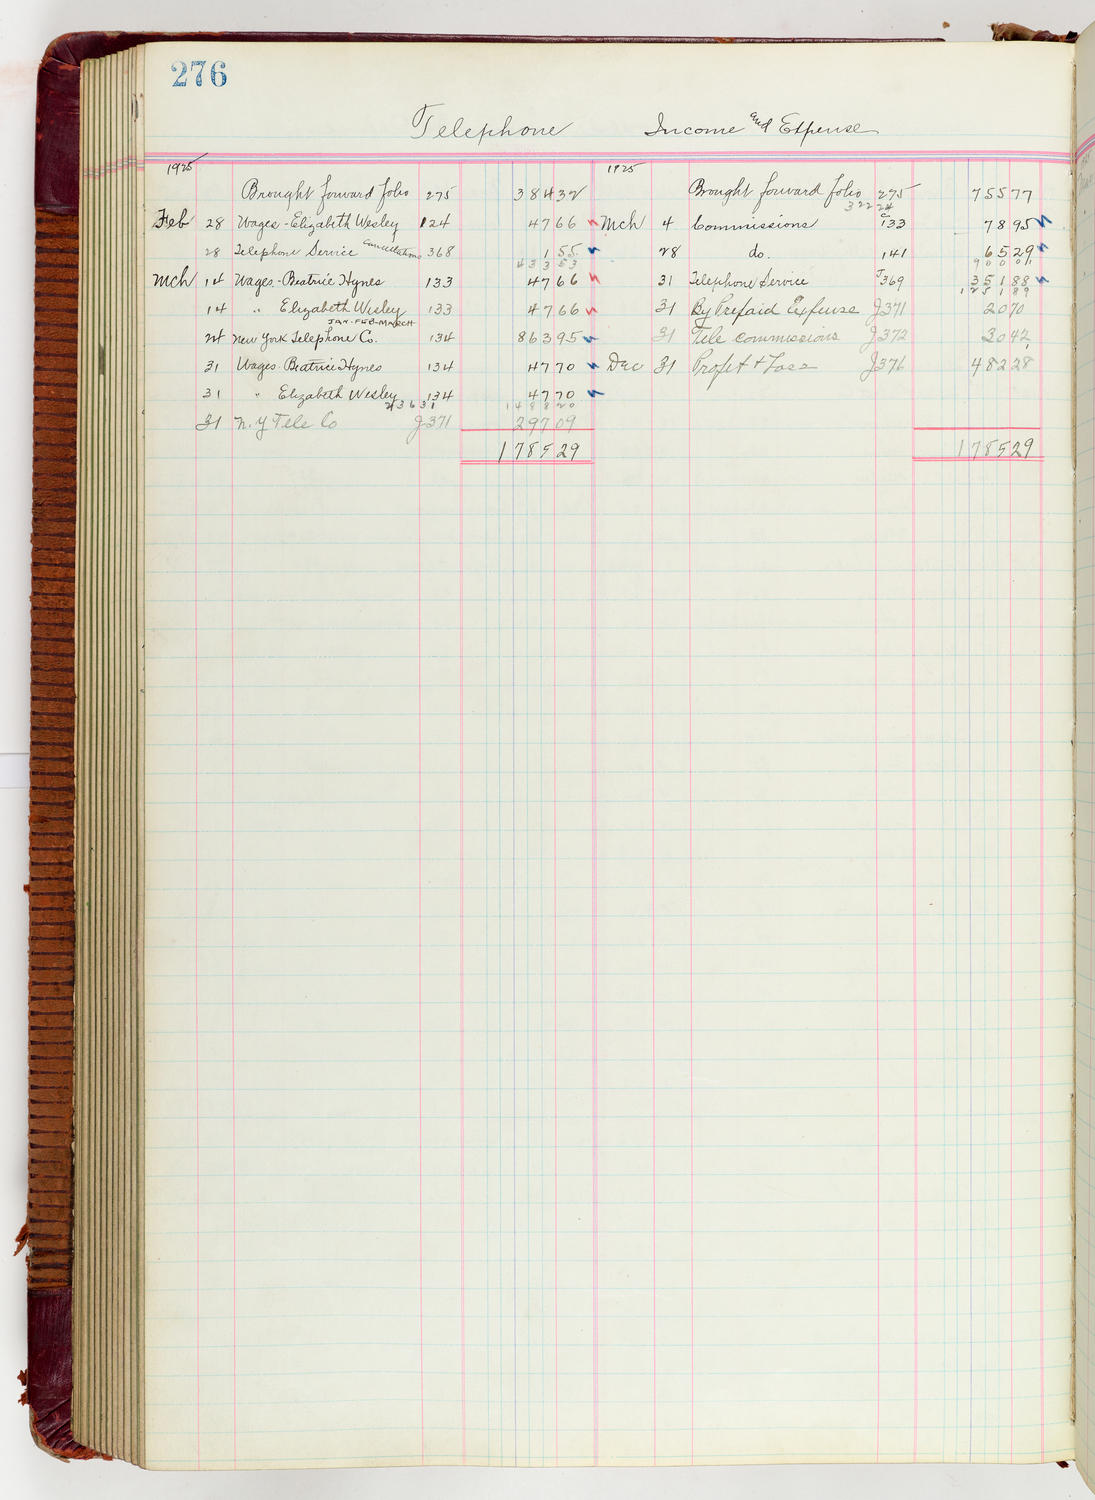 276
Telephone Income and Expense
1925 1925
Brought forward folio 275 384 32 Brought forward folio 275 755 77
322 24
Feb 28 Wages - Elizabeth Wesley 124 47 66 Mch 4 Commissions C133 78 95
28 Telephone Service Cancellations 368 1 55 28 do. 141 65 29
433 53 900 01
Mch 14 Wages - Beatrice Hynes 133 47 66 31 Telephone Service J369 351 88
1251 89
14 " Elizabeth Wesley 133 47 66 31 By Prepaid Expense J371 20 70
JAN-FEB-MARCH
24 New York Telephone Co. 134 863 95 31 Tele commissions J372 30 42
31 Wages - Beatrice Hynes 134 47 70 Dec 31 Profit & Loss J376 482 28
31 " Elizabeth Wesley 134 47 70
236 31 1488 20
31 N.Y Tele Co J371 297 09
1785 29 1785 29